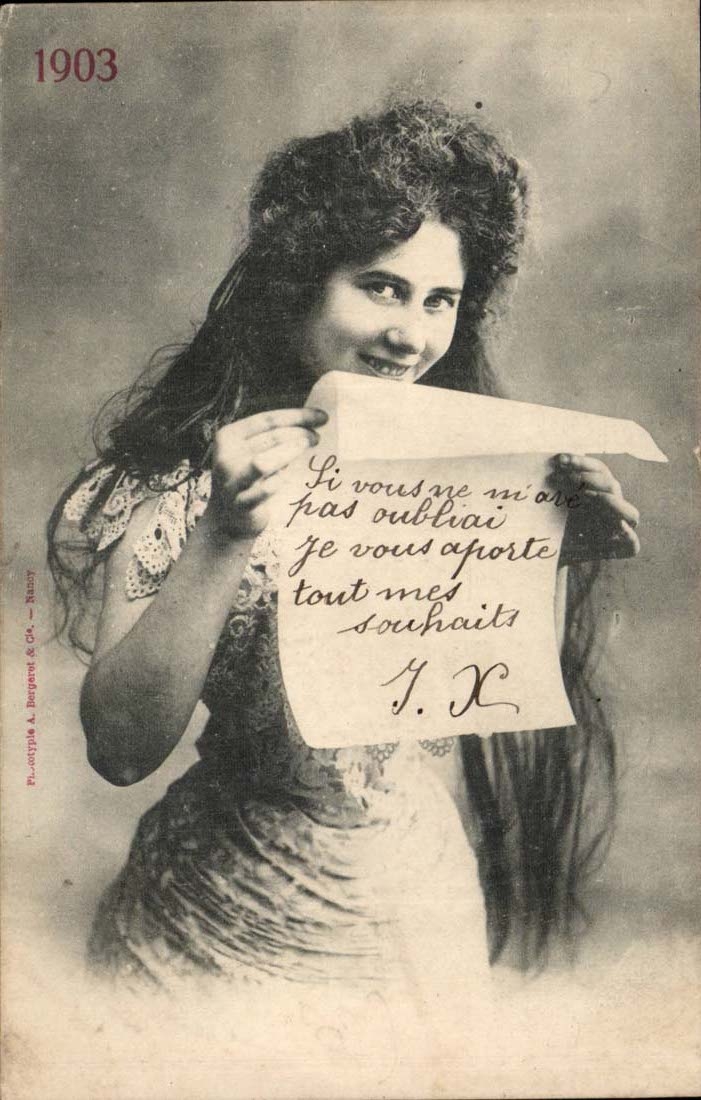 1903
Si vous ne m'avé
pas oubliai
Je vous aporte
tout mes
souhaits
J. X
Phototypie A. Bergeret & Cie. — Nancy